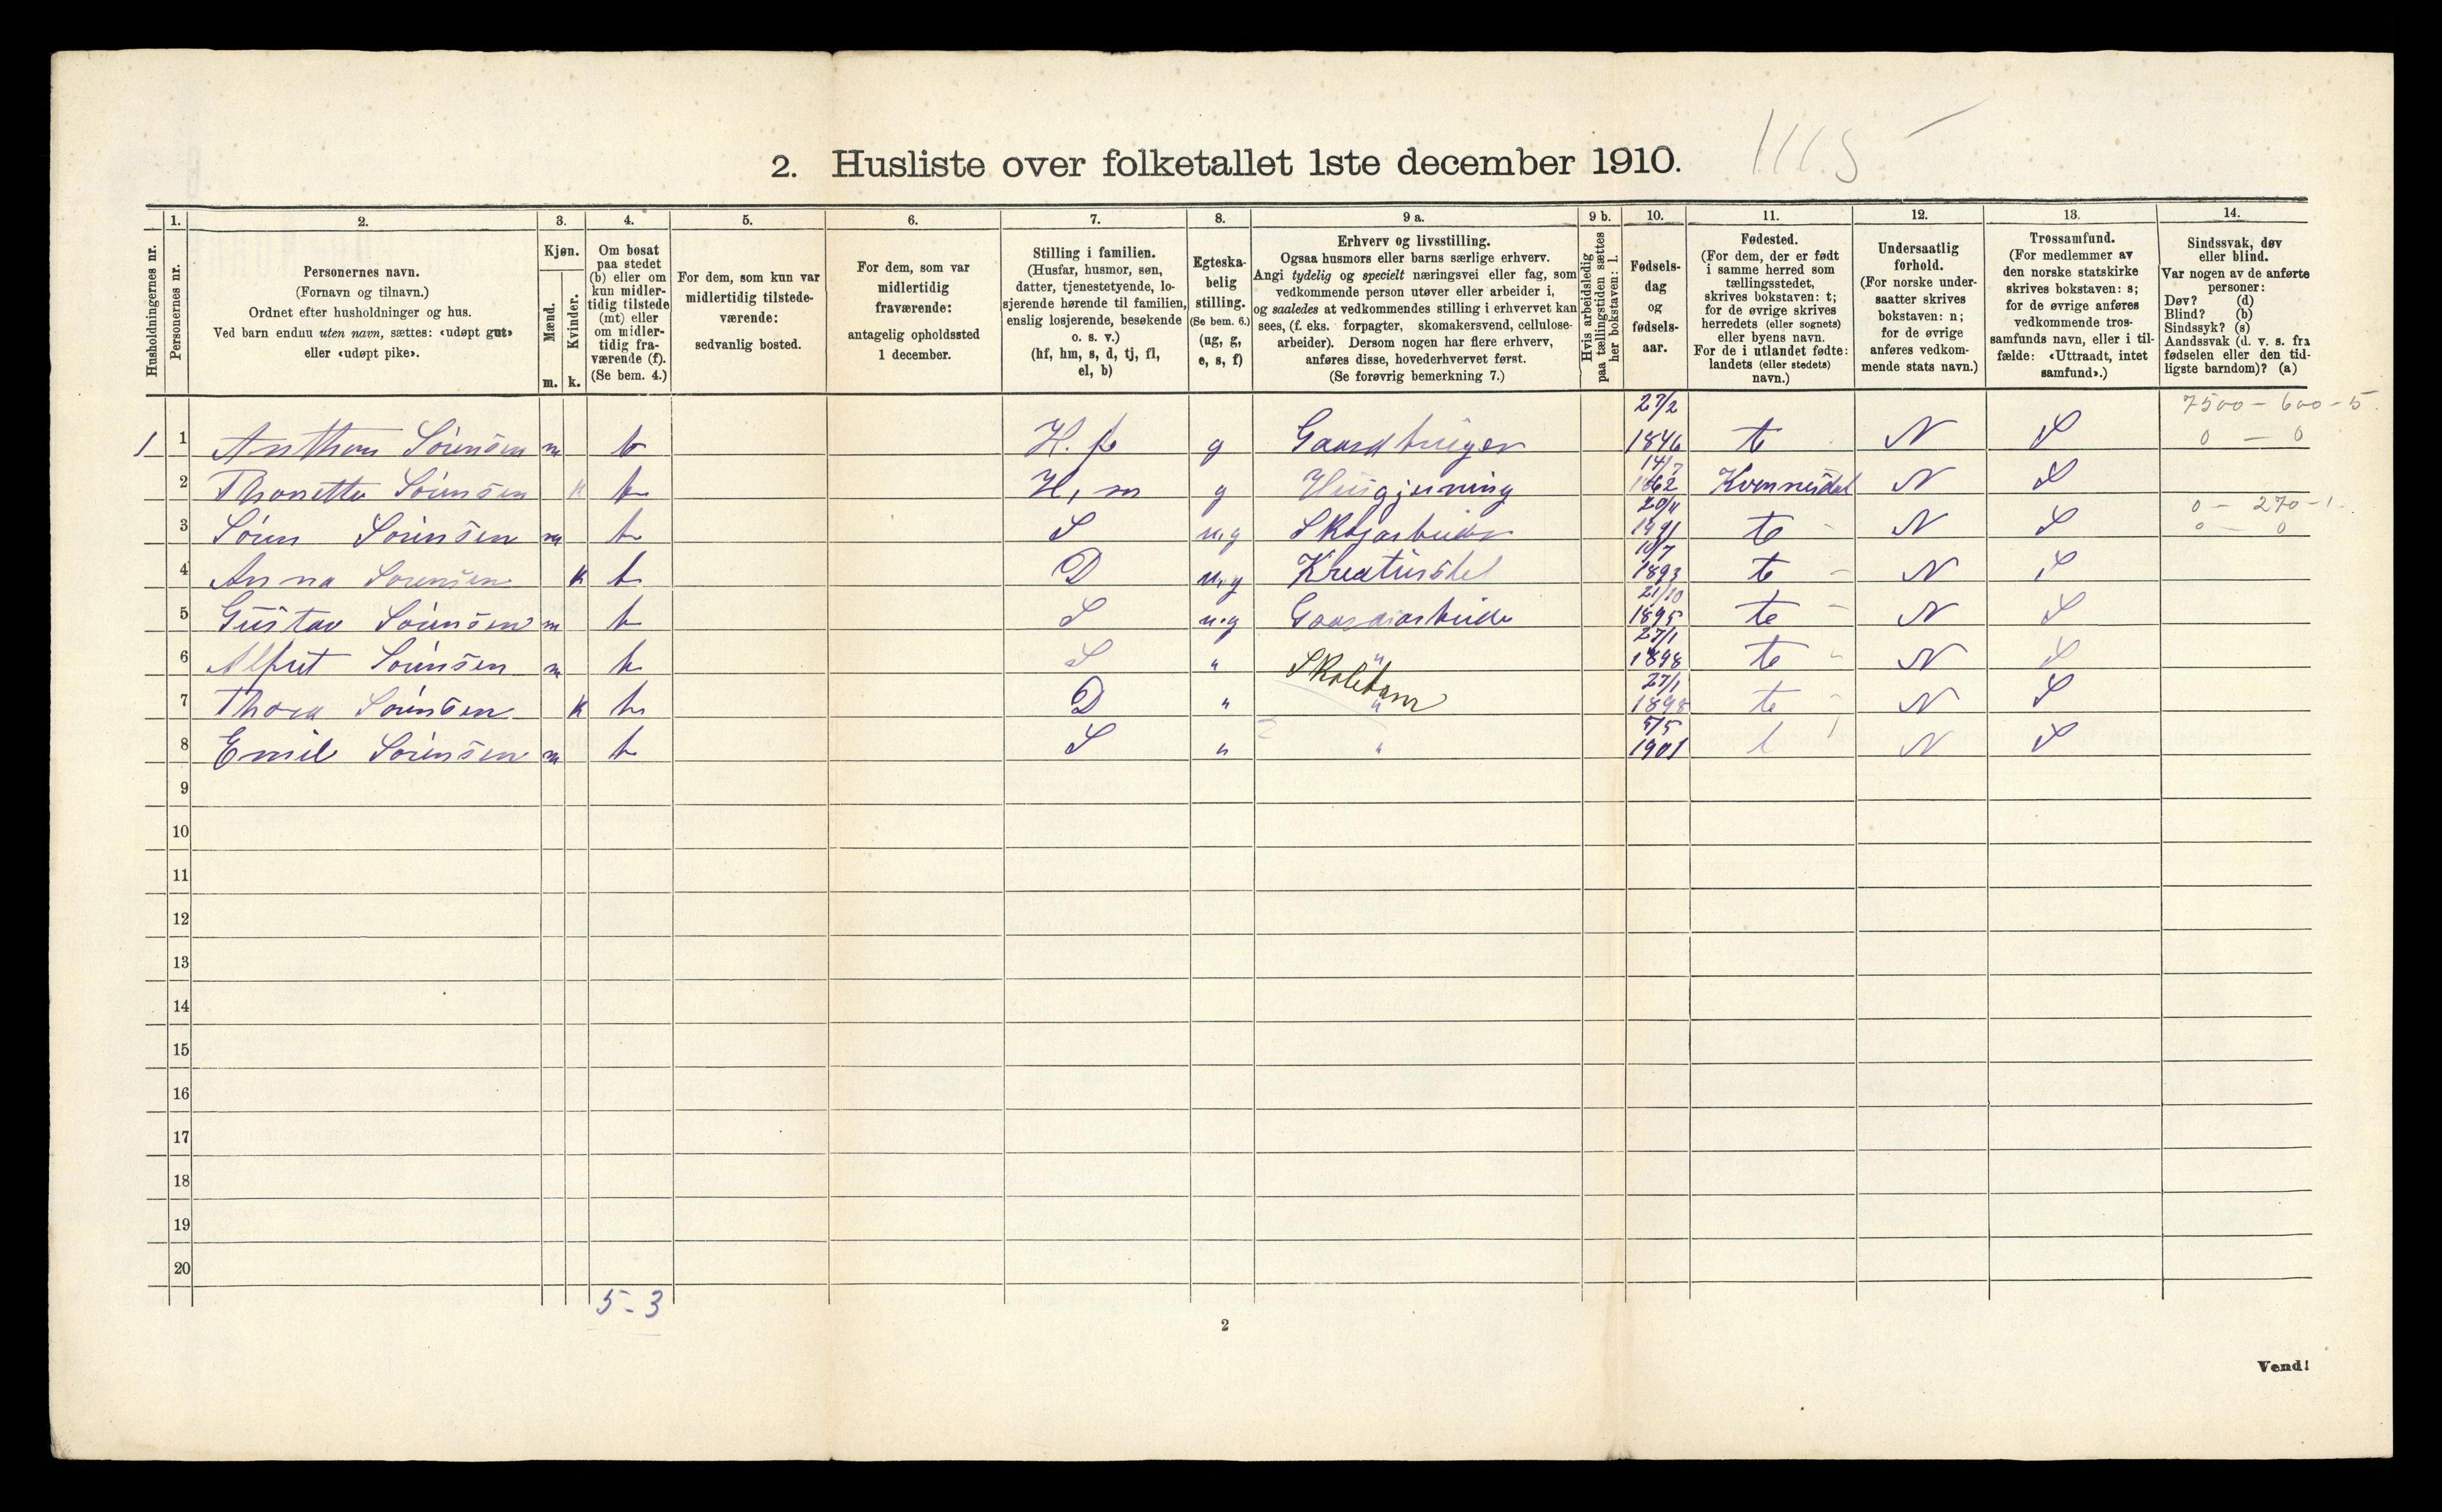 1115
2. Husliste over folketallet 1ste december 1910.
Husholdningernes nr.
1. Personernes nr.
2. Personernes navn.
(Fornavn og tilnavn.)
Ordnet efter husholdninger og hus.
Ved barn endnu uten navn, sættes: «udøpt gut»
eller «udøpt pike».
3. Kjøn.
Mænd. m.
Kvinder. k.
4. Om bosat
paa stedet
(b) eller om
kun midler-
tidig tilstede
(mt) eller
om midler-
tidig fra-
værende (f).
(Se bem. 4.)
5. For dem, som kun var
midlertidig tilstede-
værende:
sedvanlig bosted.
6. For dem, som var
midlertidig
fraværende:
antagelig opholdssted
1 december.
7. Stilling i familien.
(Husfar, husmor, søn,
datter, tjenestetyende, lo-
sjerende hørende til familien,
enslig losjerende, besøkende
o. s. v.)
(hf, hm, s, d, tj, fl,
el, b)
8. Egteska-
belig
stilling.
(Se bem. 6.)
(ug, g,
e, s, f)
9 a. Erhverv og livsstilling.
Ogsaa husmors eller barns særlige erhverv.
Angi tydelig og specielt næringsvei eller fag, som
vedkommende person utøver eller arbeider i,
og saaledes at vedkommendes stilling i erhvervet kan
sees, (f. eks. forpagter, skomakersvend, cellulose-
arbeider). Dersom nogen har flere erhverv,
anføres disse, hovederhvervet først.
(Se forøvrig bemerkning 7.)
9 b. Hvis arbeidsledig
paa tællingstiden sættes
her bokstaven: l.
10. Fødsels-
dag
og
fødsels-
aar.
11. Fødested.
(For dem, der er født
i samme herred som
tællingsstedet,
skrives bokstaven: t;
for de øvrige skrives
herredets (eller sognets)
eller byens navn.
For de i utlandet fødte:
landets (eller stedets)
navn.)
12. Undersaatlig
forhold.
(For norske under-
saatter skrives
bokstaven: n;
for de øvrige
anføres vedkom-
mende stats navn.)
13. Trossamfund.
(For medlemmer av
den norske statskirke
skrives bokstaven: s;
for de øvrige anføres
vedkommende tros-
samfunds navn, eller i til-
fælde: «Uttraadt, intet
samfund».)
14. Sindssvak, døv
eller blind.
Var nogen av de anførte
personer:
Døv? (d)
Blind? (b)
Sindssyk? (s)
Aandssvak (d. v. s. fra
fødselen eller den tid-
ligste barndom)? (a)
1 1 Anthon Sörensen m b H. f g Gaardbruger 27/2 1846 t N S 7500 - 600 - 5 0 - 0
2 Thonette Sörensen k b H, m g Husgjerning 14/7 1862 Kvennesdal N S
3 Sören Sörensen m b S u.g Skogarbeider 20/4 1891 t N S 0 - 270 - 1 0 - 0
4 Anna Sörensen k b D u.g Kreaturstel 10/7 1893 t N S
5 Gustav Sörensen m b S u.g Gaardsarbeide 21/10 1895 t N S
6 Alfret Sörensen m b S " " Skolebarn 27/1 1898 t N S
7 Thora Sörensen k b D " " 27/1 1898 t N S
8 Emil Sörensen m b S " " 5/5 1901 t N S
9
10
11
12
13
14
15
16
17
18
19
20
5 - 3
2
Vend!